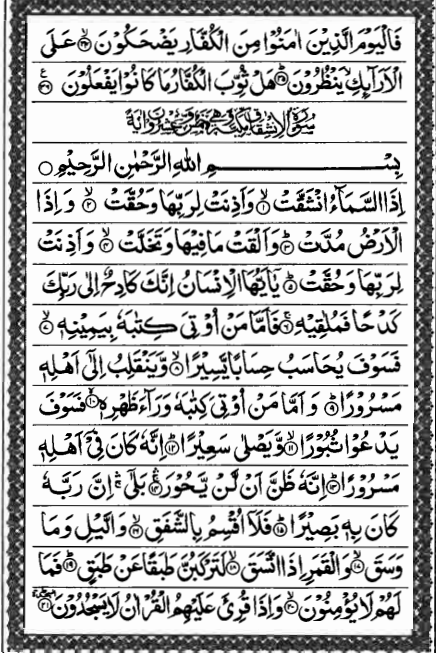 فَالْيَوْمَ الَّذِيْنَ اٰمَنُوْا مِنَ الْكُفَّارِ يَضْحَكُوْنَ ﴿۳۴﴾ عَلَى
الْاَرَآىِٕكِ يَنْظُرُوْنَ ﴿۳۵﴾ هَلْ ثُوِّبَ الْكُفَّارُ مَا كَانُوْا يَفْعَلُوْنَ ﴿۳۶﴾
سُوْرَةُ الْاِنْشِقَاقِ مَكِّيَّةٌ وَّهِيَ خَمْسٌ وَّعِشْرُوْنَ اٰيَةً
بِسْمِ اللّٰهِ الرَّحْمٰنِ الرَّحِيْمِ
اِذَا السَّمَآءُ انْشَقَّتْ ﴿۱﴾ وَاَذِنَتْ لِرَبِّهَا وَحُقَّتْ ﴿۲﴾ وَاِذَا
الْاَرْضُ مُدَّتْ ﴿۳﴾ وَاَلْقَتْ مَا فِيْهَا وَتَخَلَّتْ ﴿۴﴾ وَاَذِنَتْ
لِرَبِّهَا وَحُقَّتْ ﴿۵﴾ يٰٓاَيُّهَا الْاِنْسَانُ اِنَّكَ كَادِحٌ اِلٰى رَبِّكَ
كَدْحًا فَمُلٰقِيْهِ ﴿۶﴾ فَاَمَّا مَنْ اُوْتِيَ كِتٰبَهٗ بِيَمِيْنِهٖ ﴿۷﴾
فَسَوْفَ يُحَاسَبُ حِسَابًا يَّسِيْرًا ﴿۸﴾ وَّيَنْقَلِبُ اِلٰٓى اَهْلِهٖ
مَسْرُوْرًا ﴿۹﴾ وَاَمَّا مَنْ اُوْتِيَ كِتٰبَهٗ وَرَآءَ ظَهْرِهٖ ﴿۱۰﴾ فَسَوْفَ
يَدْعُوْا ثُبُوْرًا ﴿۱۱﴾ وَّيَصْلٰى سَعِيْرًا ﴿۱۲﴾ اِنَّهٗ كَانَ فِيْٓ اَهْلِهٖ
مَسْرُوْرًا ﴿۱۳﴾ اِنَّهٗ ظَنَّ اَنْ لَّنْ يَّحُوْرَ ﴿۱۴﴾ بَلٰٓى اِنَّ رَبَّهٗ
كَانَ بِهٖ بَصِيْرًا ﴿۱۵﴾ فَلَآ اُقْسِمُ بِالشَّفَقِ ﴿۱۶﴾ وَالَّيْلِ وَمَا
وَسَقَ ﴿۱۷﴾ وَالْقَمَرِ اِذَا اتَّسَقَ ﴿۱۸﴾ لَتَرْكَبُنَّ طَبَقًا عَنْ طَبَقٍ ﴿۱۹﴾ فَمَا
لَهُمْ لَا يُؤْمِنُوْنَ ﴿۲۰﴾ وَاِذَا قُرِئَ عَلَيْهِمُ الْقُرْاٰنُ لَا يَسْجُدُوْنَ ﴿۲۱﴾